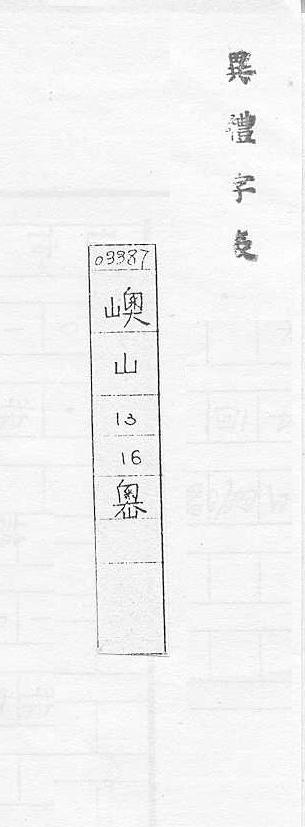 異體字表
03387
㠗
山
13
16
嶴